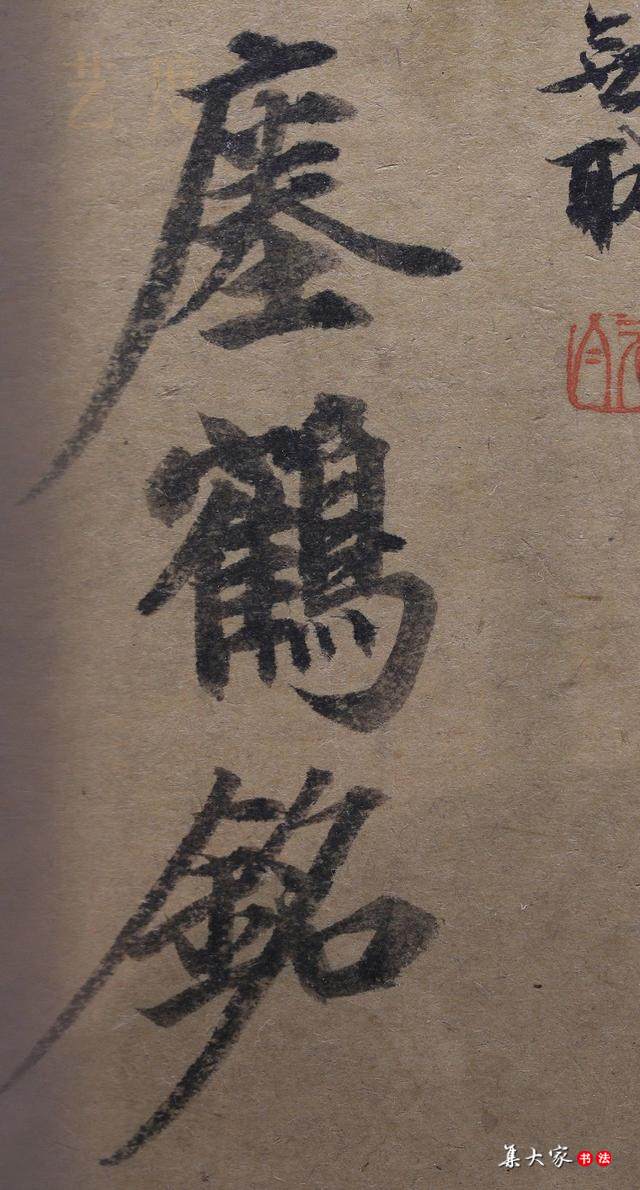 無
瘞鶴銘
集大家 书法